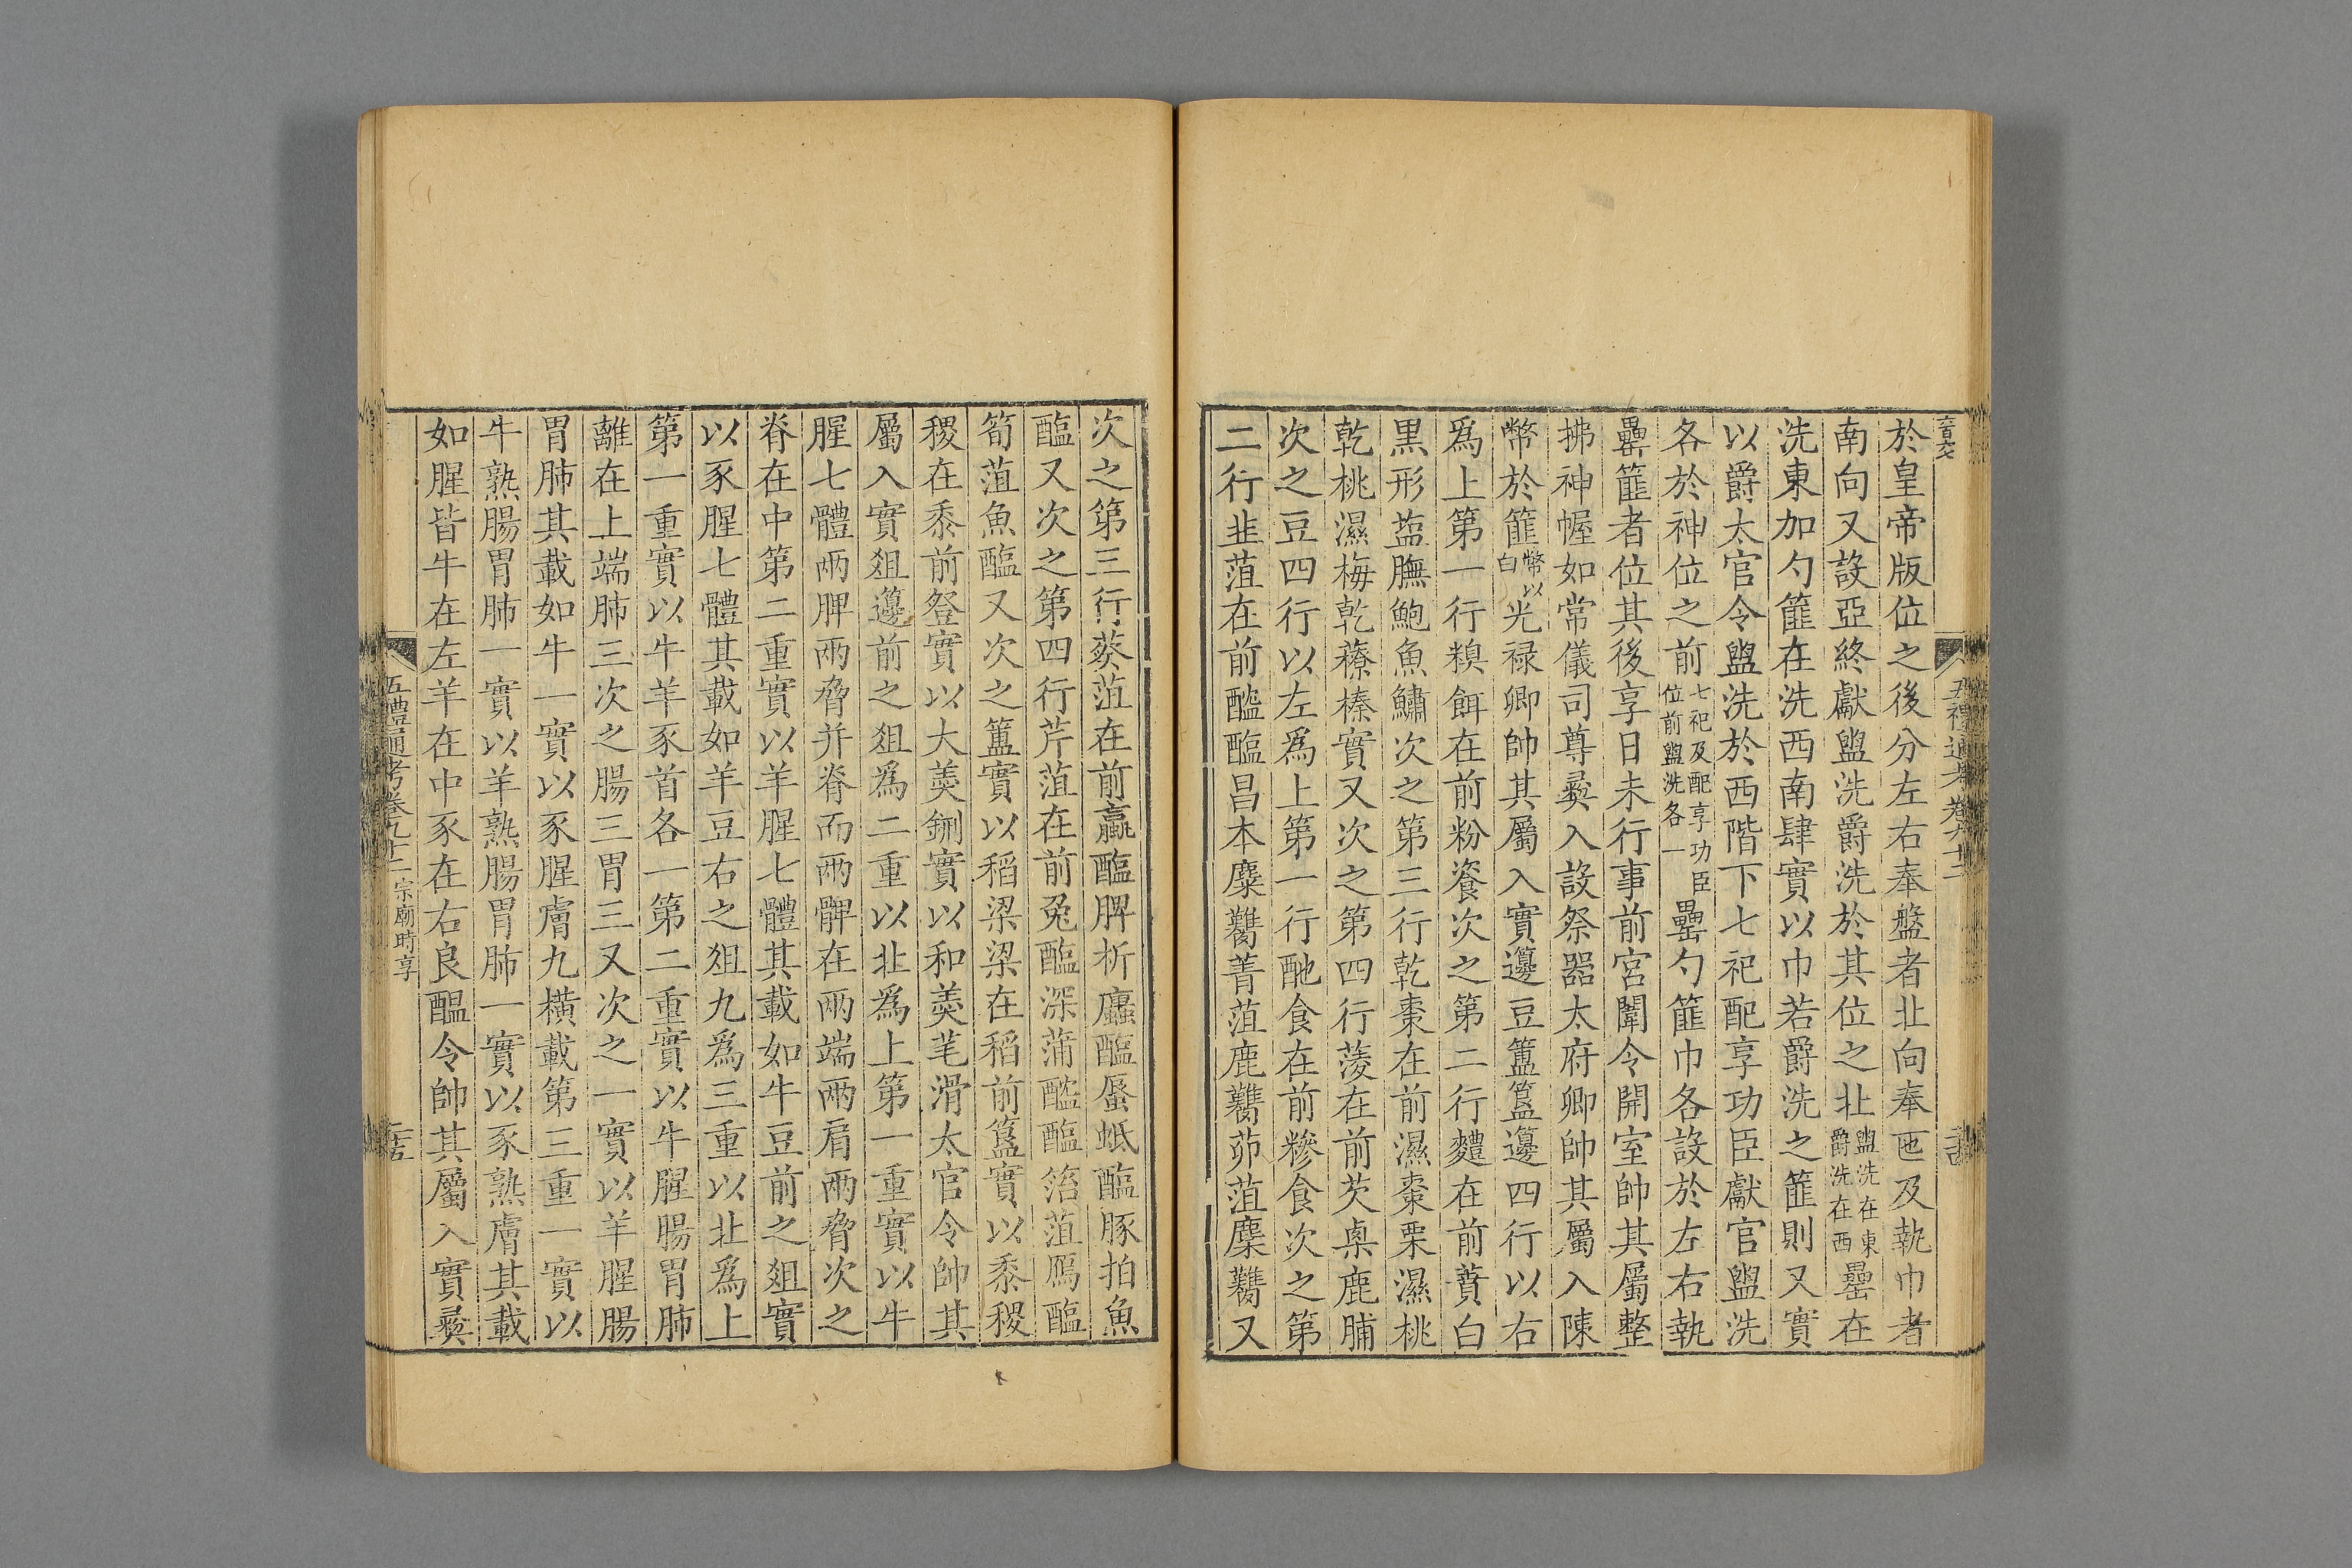 於皇帝版位之後分左右奉盤者北向奉匜及執巾者
南向又設亞終獻盥洗爵洗於其位之北盥洗在東爵洗在西罍在
洗東加勺篚在洗西南肆實以巾若爵洗之篚則又實
以爵太官令盥洗於西階下七祀配享功臣獻官盥洗
各於神位之前七祀及配享功臣位前盥洗各一罍勺篚巾各設於左右執
罍篚者位其後享日未行事前宮闈令開室帥其屬整
拂神幄如常儀司尊彝入設祭器太府卿帥其屬入陳
幣於篚幣以白光禄卿帥其屬入實籩豆簠簋籩四行以右
爲上第一行糗餌在前粉餈次之第二行麷在前蕡白
黑形盐膴鮑魚鱐次之第三行乾棗在前濕棗栗濕桃
乾桃濕梅乾䕩榛實又次之第四行蓤在前芡㮚鹿脯
次之豆四行以左爲上第一行酏食在前糝食次之第
二行韭菹在前醓醢昌本麋臡菁菹鹿臡茆菹麋臡又
次之第三行葵菹在前蠃醢脾析蠯醢蜃蚳醢豚拍魚
醢又次之第四行芹菹在前兎醢深蒲醓醢箈菹鴈醢
筍菹魚醢又次之簠實以稻粱粱在稻前簋實以黍稷
稷在黍前登實以大羮鉶實以和羮芼滑太官令帥其
屬入實俎籩前之俎爲二重以北爲上第一重實以牛
腥七體兩髀兩脅并脊而兩髀在兩端兩肩兩脅次之
脊在中第二重實以羊腥七體其載如牛豆前之俎實
以豕腥七體其載如羊豆右之俎九爲三重以北爲上
第一重實以牛羊豕首各一第二重實以牛腥腸胃肺
離在上端肺三次之腸三胃三又次之一實以羊腥腸
胃肺其載如牛一實以豕腥膚九橫載第三重一實以
牛熟腸胃肺一實以羊熟腸胃肺一實以豕熟膚其載
如腥皆牛在左羊在中豕在右良醖令帥其屬入實彝
五禮通考卷九十二 宗廟時享